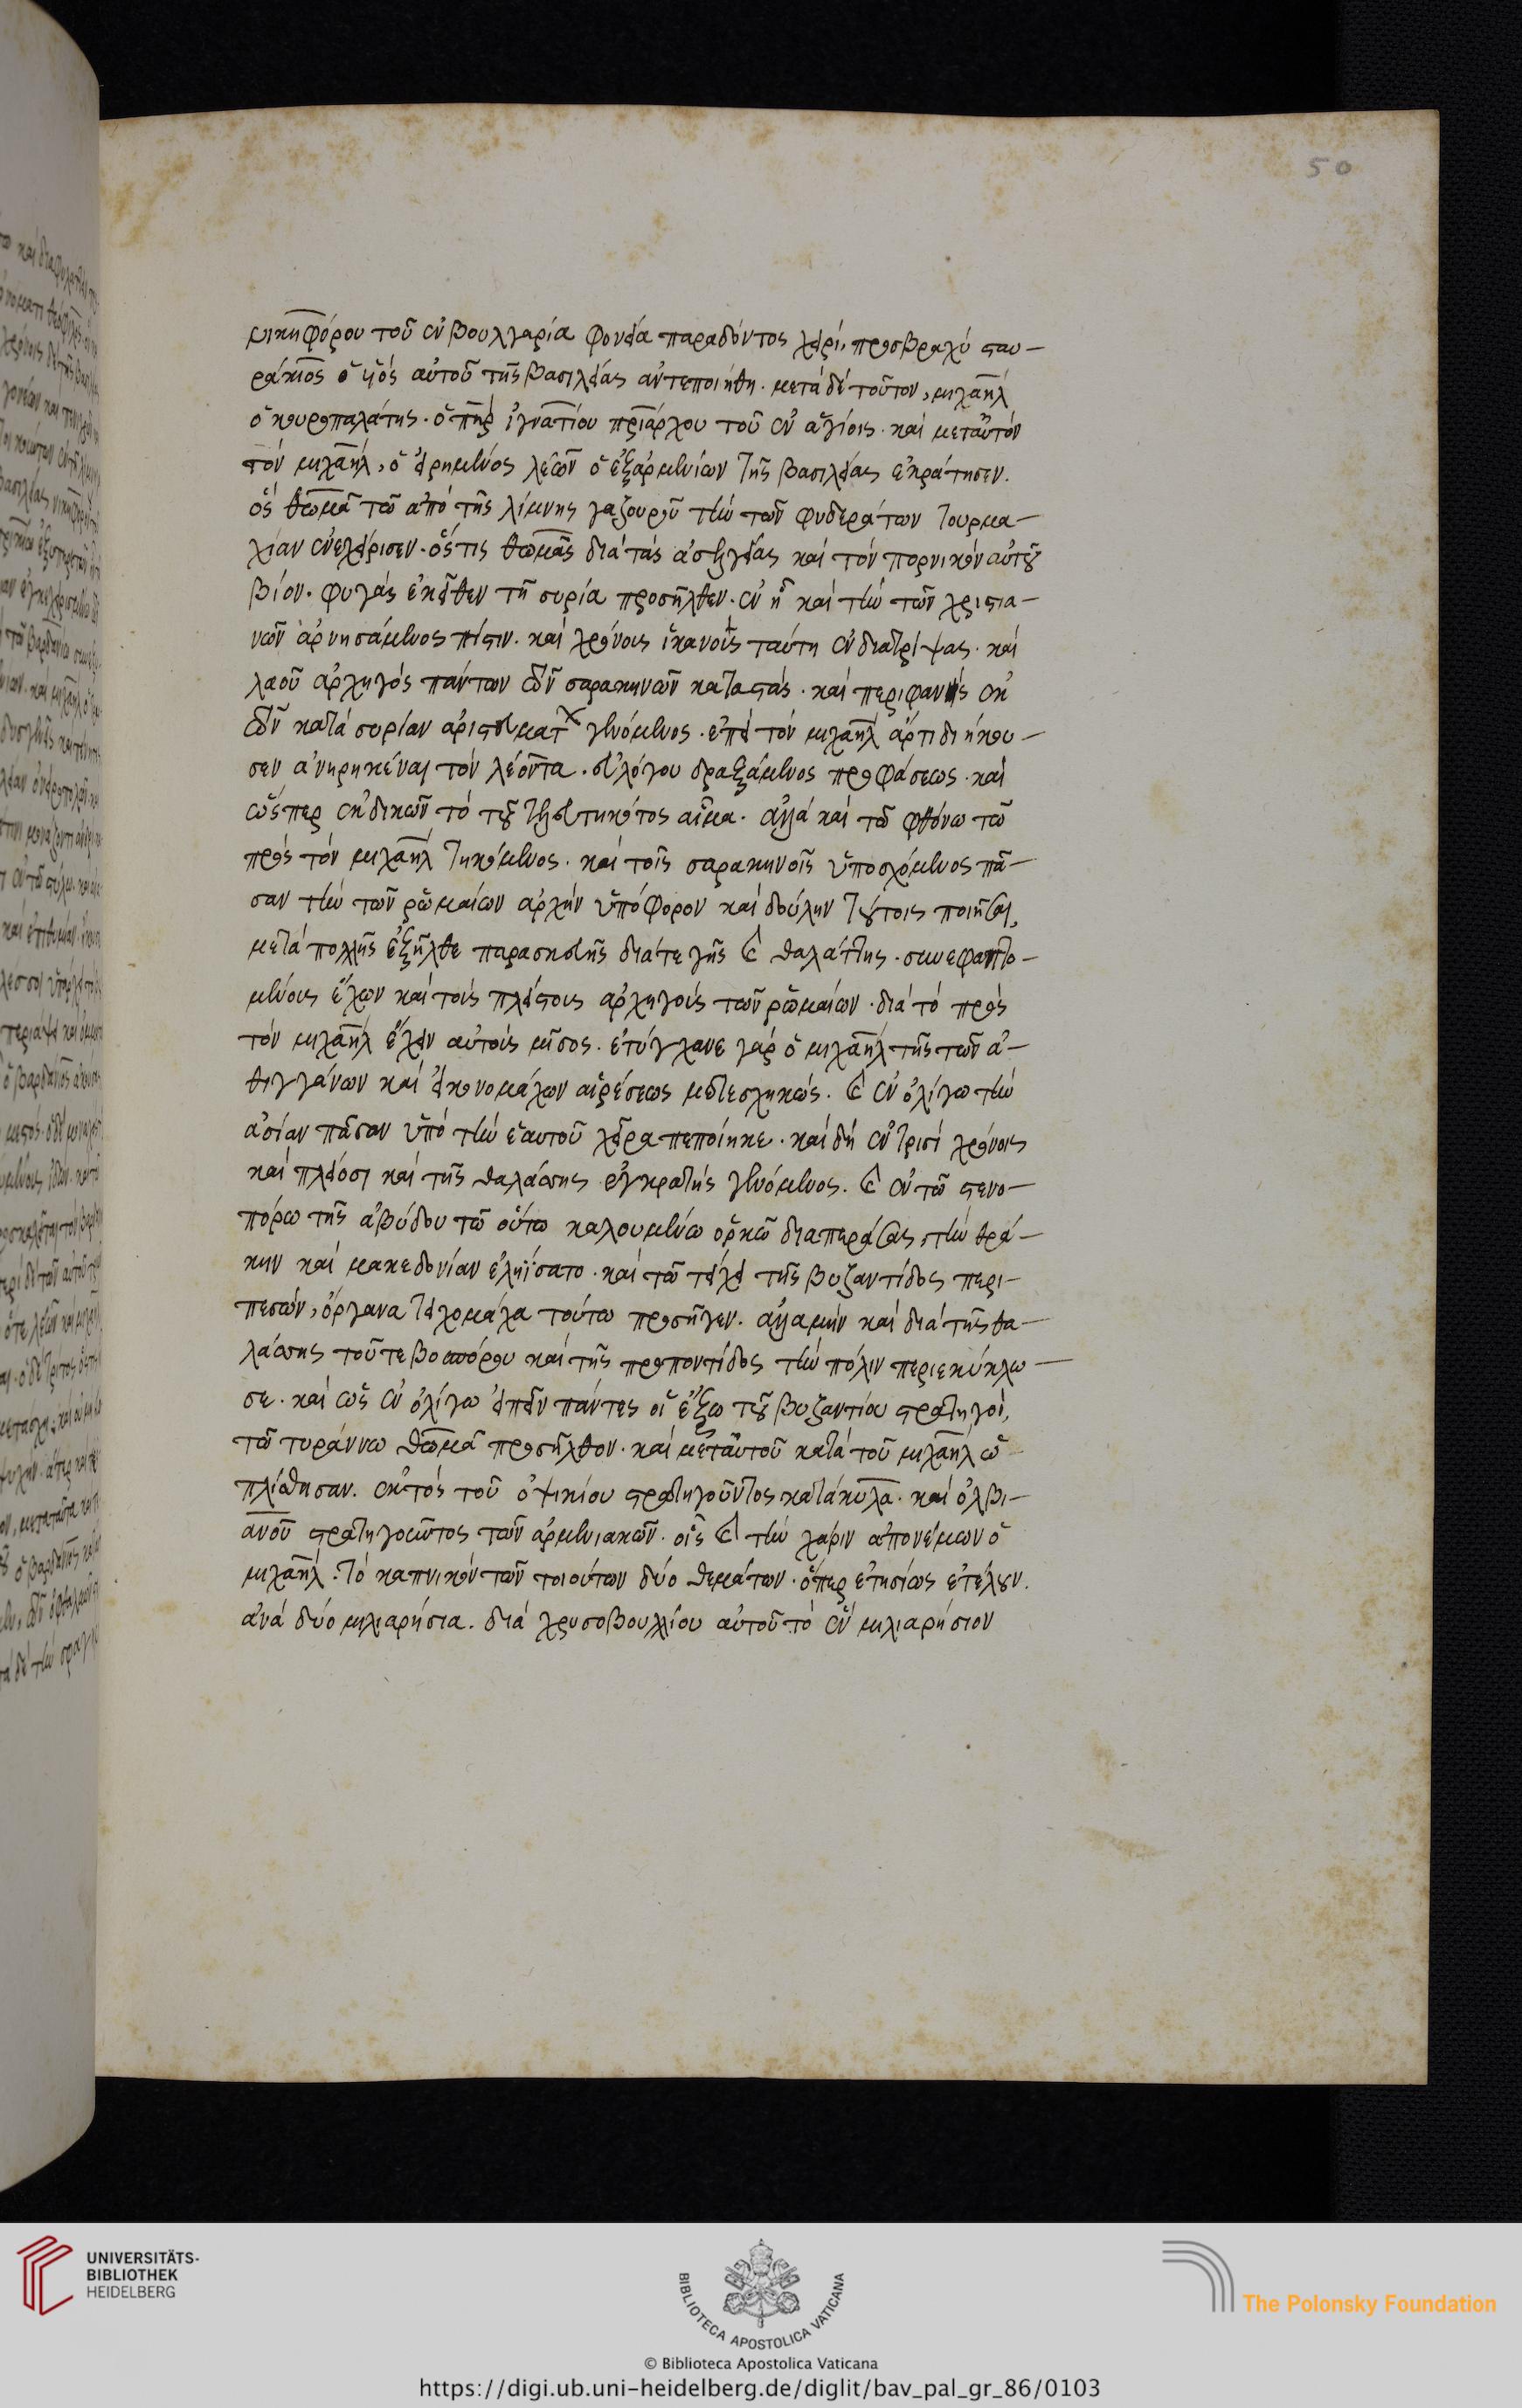 50
νικηφόρου τοῦ ἐν βουλγαρία φονεία παραδόντος χειρί, προσβραχύ σταυ-
ράκιος ὁ υἱός αὐτοῦ τῆς βασιλείας ἀντεποιήθη. μετά δέ τοῦτον, μιχαήλ
ὁ κουροπαλάτης. ὁ πηρ ἰγνατίου πριάρχου τοῦ ἐν ἁγίοις. και μεταυτόν
τόν μιχαήλ, ὁ εἰρημένος λέων ὁ ἐξαρμενίων τῆς βασιλείας ἐκράτησεν.
ὅς θωμᾶ τῶ ἀπό τῆς λίμνης γαζουροῦ τήν τῶν φυδεράτων τουρμα-
χίαν ἐνεχείρισεν. ὅστις θωμᾶς διά τάς ἀσελγείας καί τόν πορνικόν αὐτοῦ
βίον. φυγάς ἐκεῖθεν τῆ συρία προσῆλθεν. ἐν ἧ καί τήν τῶν χριστια-
νῶν ἀρνησάμενος πίστιν. καί χρόνοις ἱκανοῖς ταύτη ἐνδιατρίψας. καί
λαοῦ ἀρχηγός πάντων τῶν σαρακηνῶν καταστάς. καί περιφανής ἐκ
τῶν κατά συρίαν ἀριστευματ γενόμενος. ἐπεί τόν μιχαήλ ἄρτι διήκου-
σεν ἀνηρηκέναι τόν λέοντα. εὐλόγου δραξάμενος προφάσεως. καί
ὥσπερ ἐκδικῶν τό τοῦ τελευτηκότος αἷμα. ἀλλά καί τῶ φθόνω τῶ
πρός τόν μιχαήλ τηκόμενος. καί τοῖς σαρακηνοῖς ὑποσχόμενος πᾶ-
σαν τήν τῶν ῥωμαίων ἀρχήν ὑπόφορον καί δούλην τούτοις ποιῆσαι,
μετά πολλῆς ἐξῆλθε παρασκευῆς διά τε γῆς καὶ θαλάττης. συνεφαπτο-
μένους ἔχων καί τούς πλείστους ἀρχηγούς τῶν ῥωμαίων. διά τό πρός
τόν μιχαήλ ἔχειν αὐτούς μῖσος. ἐτύγχανε γάρ ὁ μιχαήλ τῆς τῶν ἀ-
θιγγάνων καί εἰκονομάχων αἱρέσεως μετεσχηκώς. καὶ ἐν ὀλίγω τήν
ἀσίαν πᾶσαν ὑπό τήν ἑαυτοῦ χεῖρα πεποίηκε. καί δή ἐν τρισί χρόνοις
καί πλείοσι καί τῆς θαλάσσης ἐγκρατής γενόμενος. καὶ ἐν τῶ στενο-
πόρω τῆς ἀβύδου τῶ οὕτω καλουμένω ὁρκῶ διαπεράσας, τήν θρά-
κην καί μακεδονίαν ἐληΐσατο. καί τῶ τείχει τῆς βυζαντίδος περι-
πεσών, ὄργανα τειχομάχα τούτω προσῆγεν. ἀλλαμήν καί διά τῆς θα-
λάσσης τοῦ τε βοσπόρου καί τῆς προποντίδος τήν πόλιν περιεκύκλω-
σε. καί ὡς ἐν ὀλίγω εἰπεῖν πάντες οἱ ἔξω τοῦ βυζαντίου στρατηγοί,
τῶ τυράννω θωμᾶ προσῆλθον. καί μεταυτοῦ κατά τοῦ μιχαήλ ὡ-
πλίσθησαν. ἐκτός τοῦ ὀψικίου στρατηγοῦντος κατάκυλα. καί ὀλβι-
ανοῦ στρατηγοῦντος τῶν ἀρμενιακῶν. οἷς καὶ τήν χάριν ἀπονέμων ὁ
μιχαήλ. τό καπνικόν τῶν τοιούτων δύο θεμάτων. ὅπερ ἐτησίως ἐτέλουν.
ἀνά δύο μιλιαρήσια. διά χρυσοβουλλίου αὐτοῦ τό ἕν μιλιαρήσιον
UNIVERSITÄTS-
BIBLIOTHEK
HEIDELBERG
BIBLIOTECA APOSTOLICA VATICANA
The Polonsky Foundation
© Biblioteca Apostolica Vaticana
https://digi.ub.uni-heidelberg.de/diglit/bav_pal_gr_86/0103